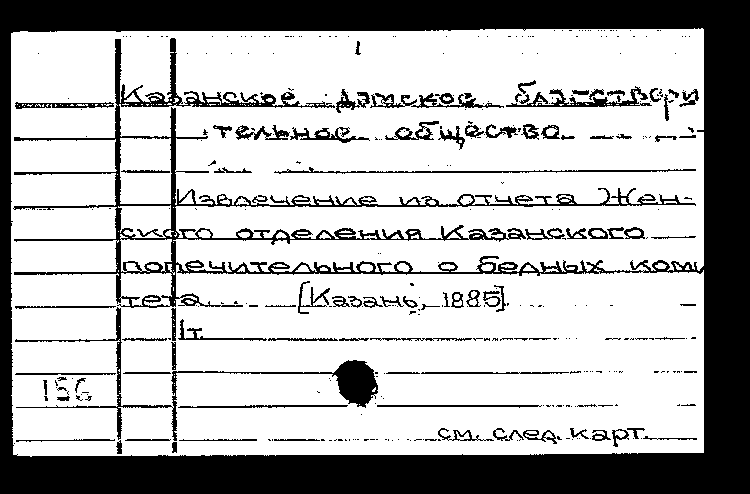 1
Казанское дамское благотвори
тельное общество
Извлечение из отчета Жен-
ского отделения Казанского
попечительного о бедных коми
тета... [Казань, 1885].
1т.
156
см. след. карт.